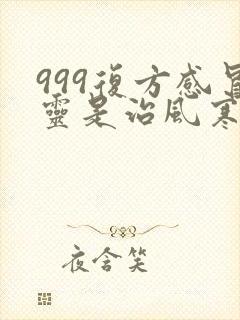 999復方感冒
靈是治風寒
夜含笑